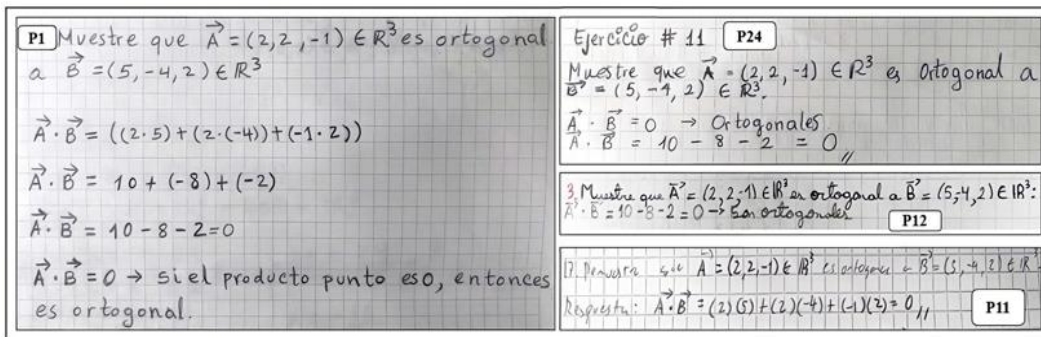 P1 Muestre que A = (2,2,-1) ∈ R³ es ortogonal
a B = (5,-4,2) ∈ R³
A · B = ((2·5)+(2·(-4))+(-1·2))
A · B = 10 + (-8) + (-2)
A · B = 10 - 8 - 2 = 0
A · B = 0 → si el producto punto es 0, entonces
es ortogonal.
Ejercicio # 11 P24
Muestre que A = (2,2,-1) ∈ R³ es Ortogonal a
B = (5,-4,2) ∈ R³.
A · B = 0 → Ortogonales
A · B = 10 - 8 - 2 = 0 //
3. Muestre que A = (2,2,-1) ∈ R³ es ortogonal a B = (5,-4,2) ∈ R³:
A · B = 10-8-2 = 0 → Son ortogonales
P12
A = (2,2,-1) ∈ R³ es ortogonal a B = (5,-4,2) ∈ R³
Respuesta: A·B = (2)(5)+(2)(-4)+(-1)(2) = 0 //
P11